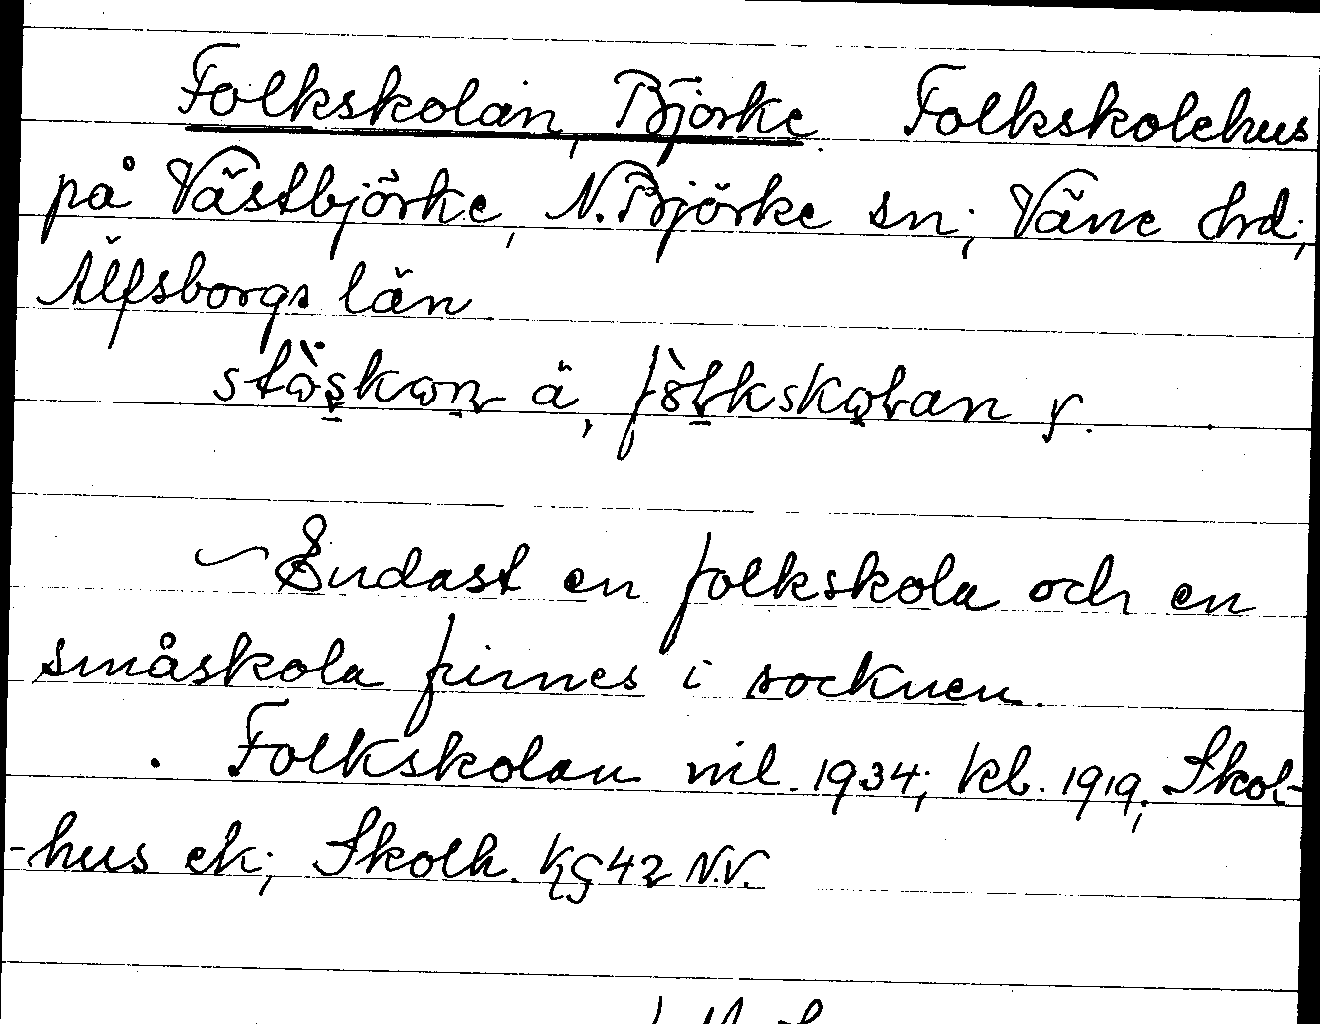 Folkskolan, Björke. Folkskolehus
på Västbjörke, N. Björke sn; Väne hd;
Älfsborgs län
ä, y.
Endast en folkskola och en
småskola finnes i socknen.
. Folkskolan mil. 1934; kb. 1919; Skol-
-hus ek; Skolh. KG 42 N.V.